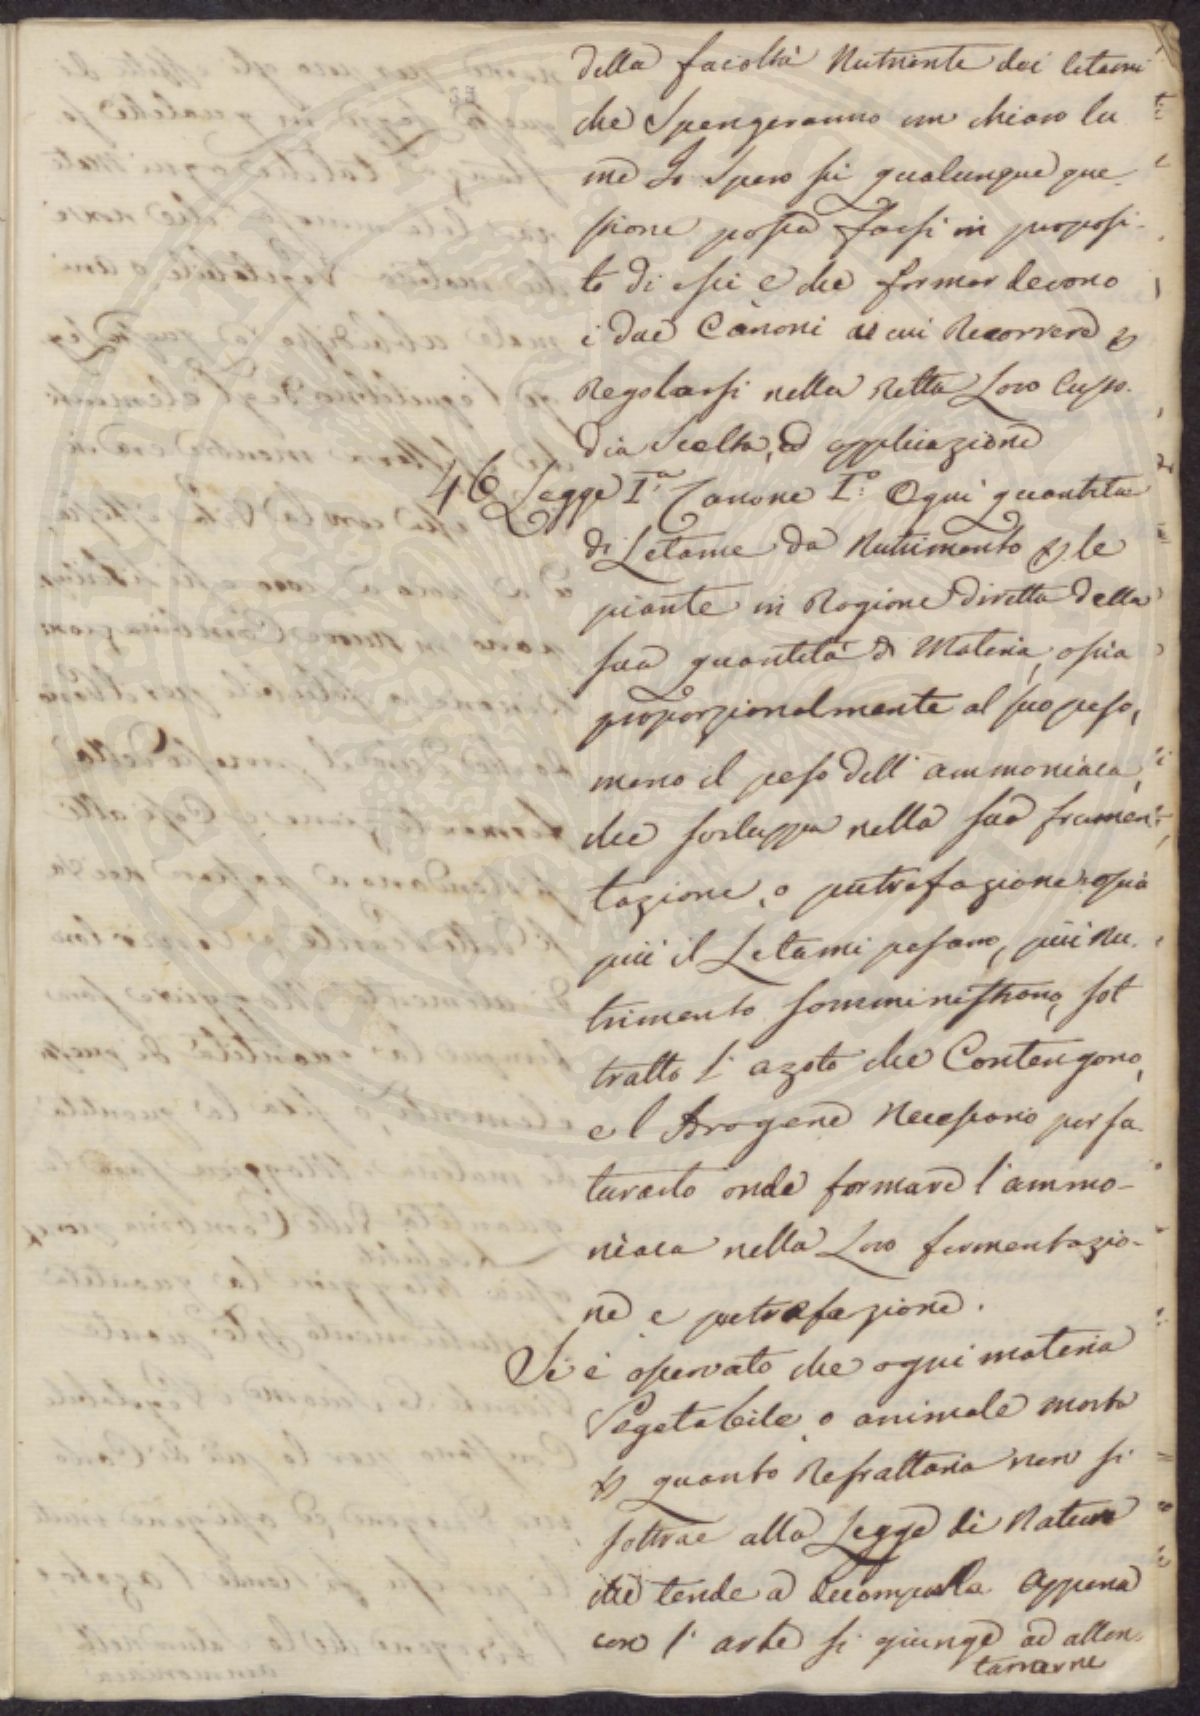 della facoltà Nutriente dei letami
che Spargeranno un chiaro lu
me Io Spero su qualunque que-
stione possa farsi in proposi-
to di essi e che formar devono
i due Canoni a cui Ricorrere e
Regolarsi nella Retta Loro Custo-
dia Scelta, ed applicazione
46 Legge I.a Canone I.o Ogni quantità
di Letame da Nutrimento p. le
piante in Ragione diretta della
sua quantità di Materia, ossia
proporzionalmente al suo peso,
meno il peso dell' ammoniaca,
che sviluppa nella sua frumen-
tazione, o putrefazione: ossia
più il Letami pesano, più Nu-
trimento somministrano, sot
tratto l' azoto che Contengono,
e l' Idrogene Necessario per sa-
turarlo onde formare l' ammo-
niaca nella Loro fermentazio-
ne e putrefazione.
Si è osservato che ogni materia
Vegetabile o animale morta
p. quanto Refrattaria non si
sottrae alla Legge di Natura
che tende a decomporla Appena
con l' arte si giunge ad allon-
tanarne